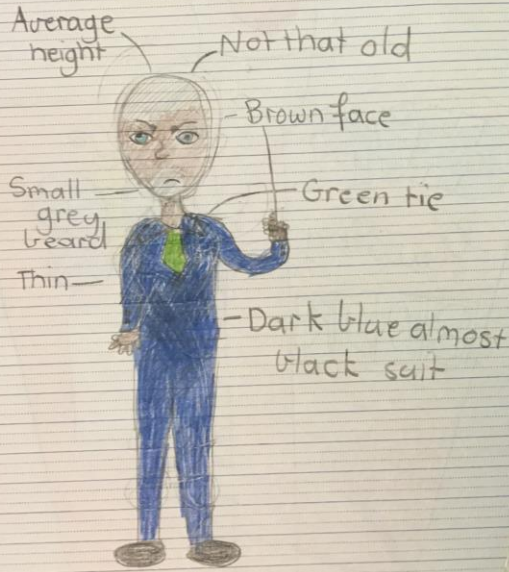 Average
height
Not that old
Brown face
Small
grey
beard
Green tie
Thin
Dark blue almost
black suit